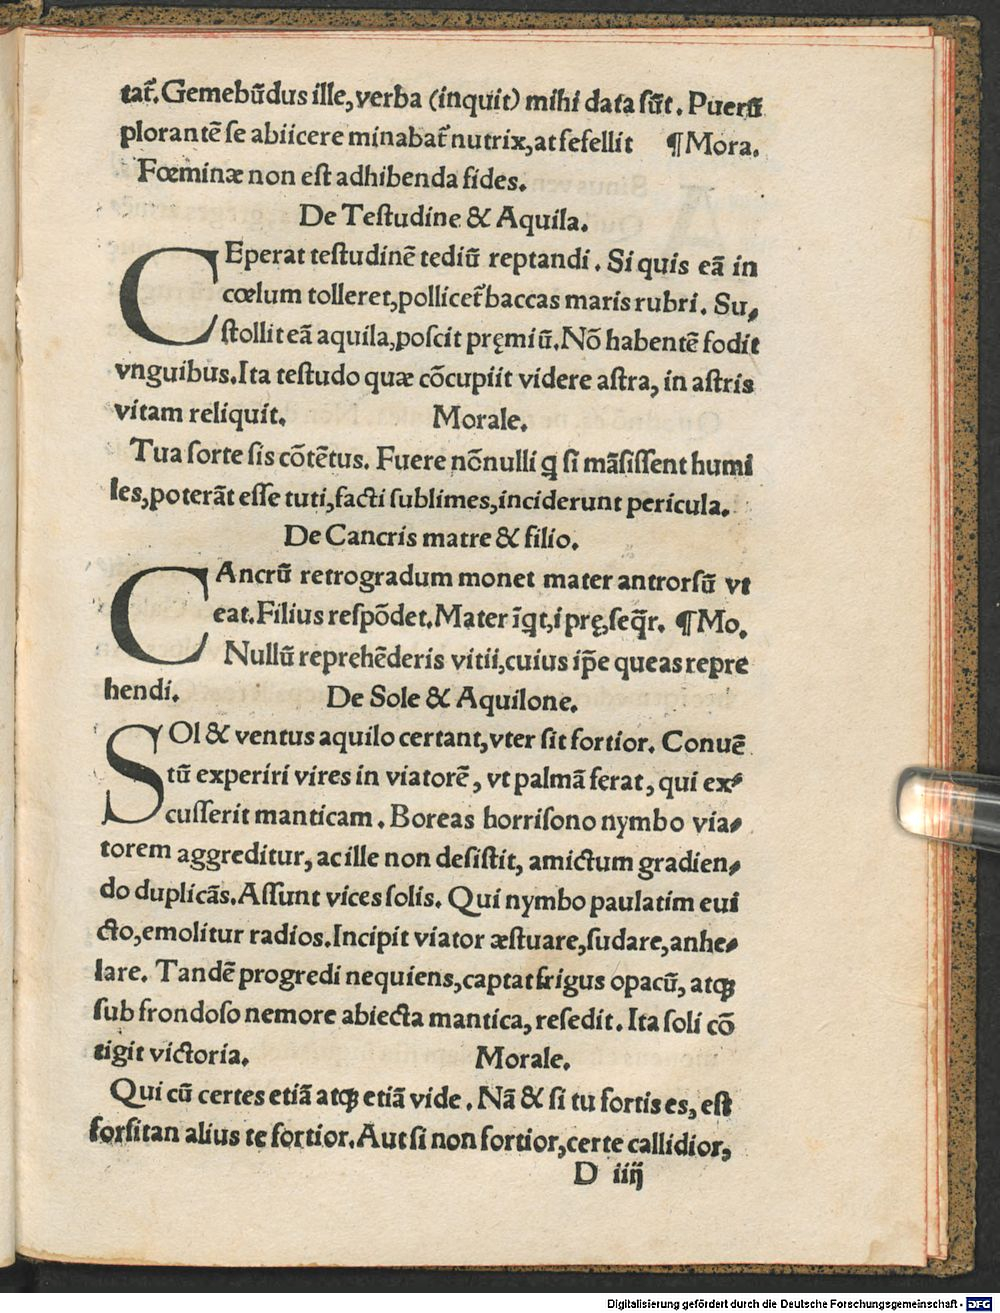 tat᷑. Gemebūdus ille, verba (inquit) mihi data sūt. Puerū
plorantē se abiicere minabat᷑ nutrix, at fefellit ¶ Mora.
Fœminæ non est adhibenda fides.
De Testudine & Aquila.
CEperat testudinē tediū reptandi. Si quis eā in
cœlum tolleret, pollicet᷑ baccas maris rubri. Su⸗
stollit eā aquila, poscit pręmiū. Nō habentē fodit
vnguibus. Ita testudo quæ cōcupiit videre astra, in astris
vitam reliquit. Morale.
Tua sorte sis cōtētus. Fuere nōnulli ꝗ si māsissent humi
les, poterāt esse tuti, facti sublimes, inciderunt pericula.
De Cancris matre & filio.
CAncrū retrogradum monet mater antrorsū vt
eat. Filius respōdet. Mater īꝗt, i prę, seq̄r. ¶ Mo.
Nullū reprehēderis vitii, cuius ip̄e queas repre
hendi. De Sole & Aquilone.
SOl & ventus aquilo certant, vter sit fortior. Conuē
tū experiri vires in viatorē, vt palmā ferat, qui ex⸗
cusserit manticam. Boreas horrisono nymbo via⸗
torem aggreditur, ac ille non desistit, amictum gradien⸗
do duplicās. Assunt vices solis. Qui nymbo paulatim eui
cto, emolitur radios. Incipit viator æstuare, sudare, anhe⸗
lare. Tandē progredi nequiens, captat frigus opacū, atq꜒
sub frondoso nemore abiecta mantica, resedit. Ita soli cō
tigit victoria. Morale.
Qui cū certes etiā atq꜒ etiā vide. Nā & si tu fortis es, est
forsitan alius te fortior. Aut si non fortior, certe callidior,
D iiij
Digitalisierung gefördert durch die Deutsche Forschungsgemeinschaft - DFG